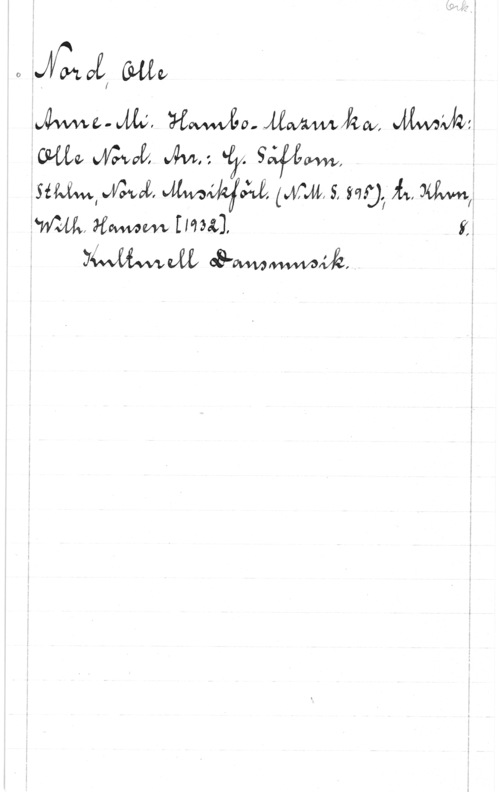 Ork.
Nord, Olle
Anne-Mi. Hambo-Mazurka. Musik:
Olle Nord. Arr.: G. Säfbom.
Sthlm, Nord. Musikförl. (N.M.S. 895); tr. Khvn,
Wilh. Hansen [1932]. 8.
Kulturell Dansmusik.